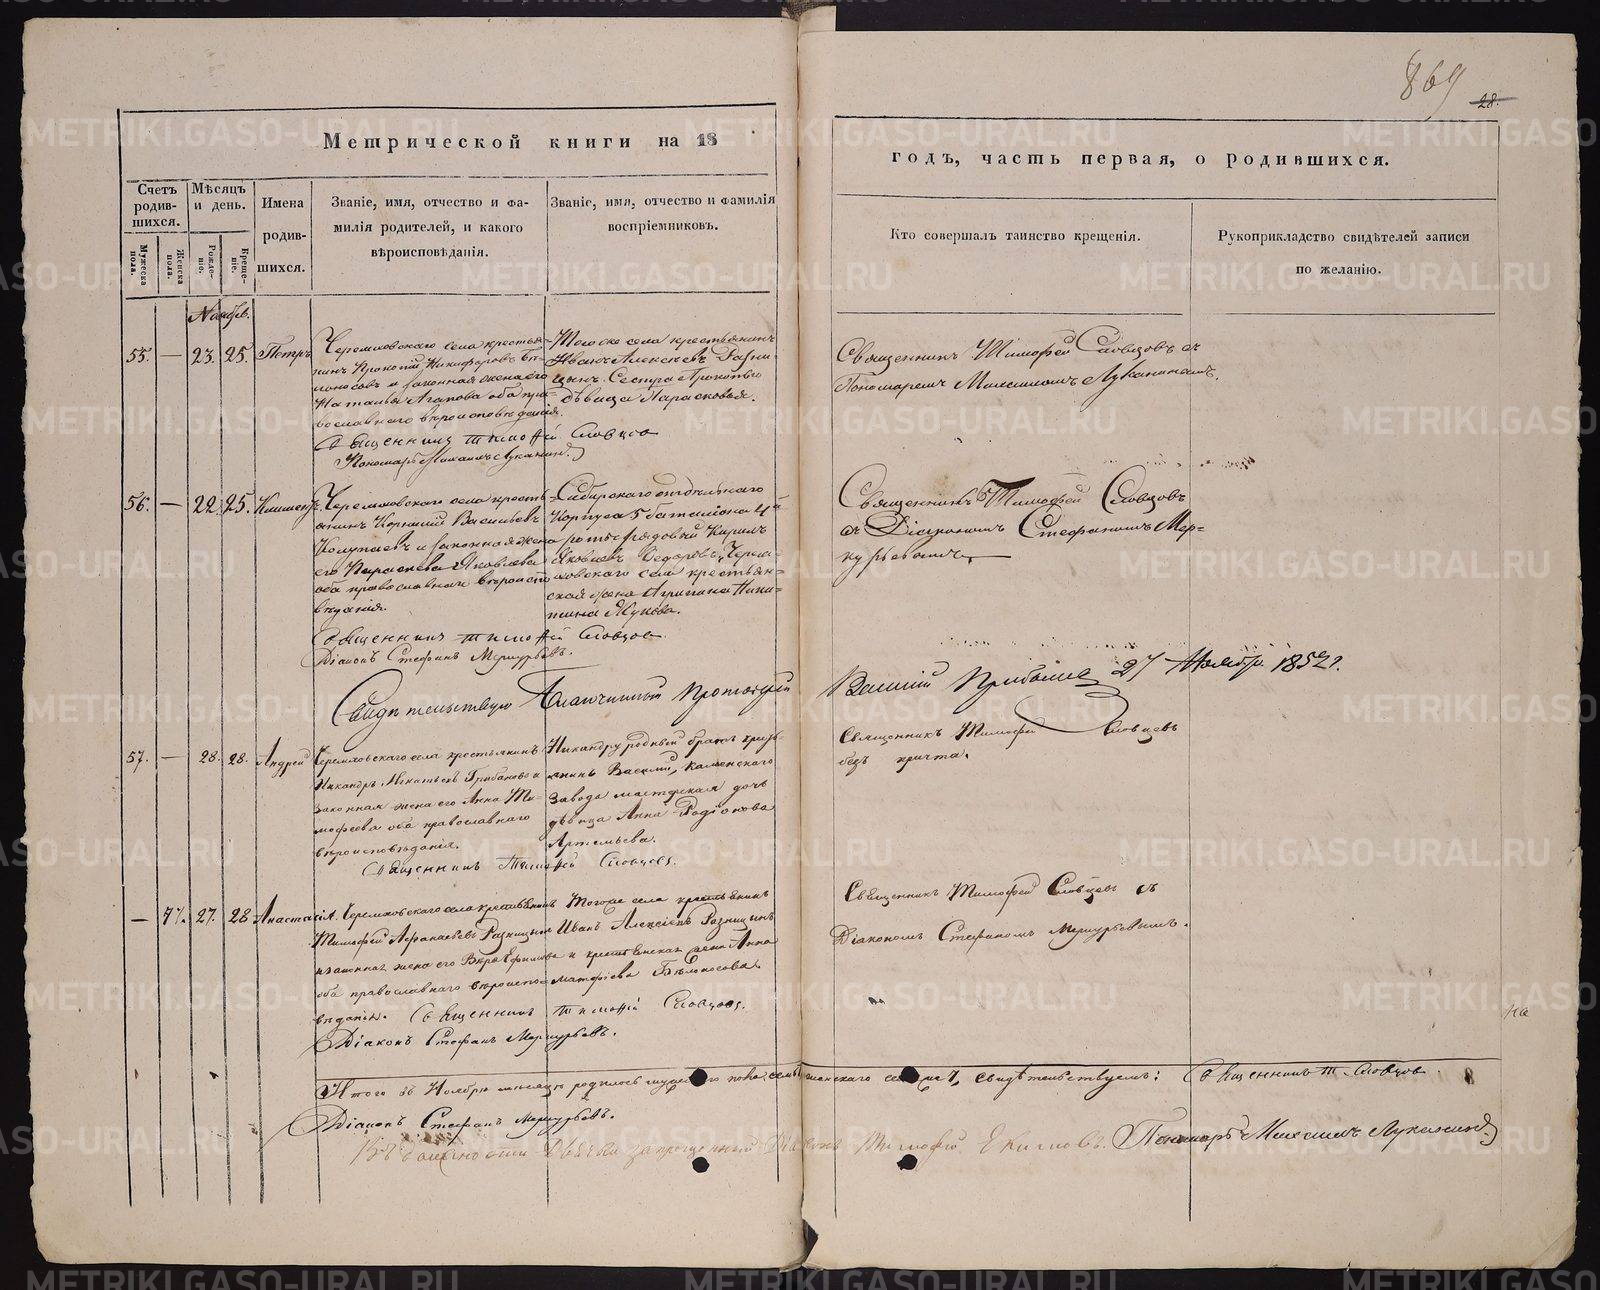 869
28.
Метрической книги на 18
годъ, часть первая, о родившихся.
Счетъ родив-шихся.
Мѣсяцъ и день.
Имена родив-шихся.
Званіе, имя, отчество и фа-
милія родителей, и какого
вѣроисповѣданія.
Званіе, имя, отчество и фамилія
воспріемниковъ.
Кто совершалъ таинство крещенія.
Рукоприкладство свидѣтелей записи
по желанію.
Мужеска пола.
Женска пола.
Рожде-ніе.
Креще-ніе.
Ноябр.
55. — 23. 25. Петръ
Черемховскаго села крестья-
нинъ Прокопій Никифоровъ Бѣ-
лоносовъ и законная жена его
Наталья Агапова оба пра-
вославнаго вѣроисповѣданія.
Священникъ Тимофей Словцов
Пономарь Михаилъ Луканинъ
Того же села крестьянинъ
Иванъ Алексѣевъ Разни-
цынъ. Сестра Прокопью
дѣвица Парасковья.
Священникъ Тимофей Словцовъ съ
Пономаремъ Михаиломъ Луканинымъ.
56. — 22. 25. Климентъ.
Черемховскаго села кресть-
янинъ Корнилій Васильевъ
и законная жена
его Параскева Яковлева
оба православнаго вѣроиспо-
вѣданія.
Священникъ Тимофей Словцов.
Діаконъ Стефанъ Меркурьевъ.
Сибирскаго отдѣльнаго
Корпуса 5 баталіона 4й
роты рядовый Кирилъ
Яковлевъ Федоровъ, Черем-
ховскаго села крестьян-
ская жена Агрипина Ники-
тина Жукова.
Священникъ Тимофей Словцовъ
съ Діакономъ Стефаномъ Мер-
курьевымъ.
Свидѣтельствую Благочинный Протоіерей
Василій 27 Ноября 1852 г.
57. — 28. 28. Андрей
Черемховскаго села крестьянинъ
Никандръ Игнатьевъ Грибановъ и
законная жена его Анна Ти-
мофеева оба православнаго
вѣроисповѣданія.
Священникъ Тимофей Словцов.
Никандру родный братъ кресть-
янинъ Василій, Каменскаго
завода мастерская дочь
дѣвица Анна Родіонова
Артемьева.
Священникъ Тимофей Словцовъ
безъ причта.
— 47. 27. 28 Анастасія.
Черемховскаго села крестьянинъ
Тимофей Афанасьевъ Разницынъ
и законная жена его Вѣра Ефимова
оба православнаго вѣроиспо-
вѣданія. Священникъ Тимофей Словцов.
Діаконъ Стефанъ Меркурьевъ.
Того же села крестьянинъ
Иванъ Алексѣевъ Разницынъ
и крестьянская жена Анна
Матфіева Бѣлоносова.
Священникъ Тимофей Словцовъ съ
Діакономъ Стефаномъ Меркурьевымъ.
Итого въ Ноябрѣ мѣсяцѣ родилось мужескаго пола семь, женскаго свидѣтельствуемъ: Священникъ Т. Словцов.
Діаконъ Стефанъ Меркурьевъ.
Въ должности Дьячка запрещенный Діаконъ Тимофей Екимовъ. Пономарь Михаилъ Луканинъ
METRIKI.GASO-URAL.RU